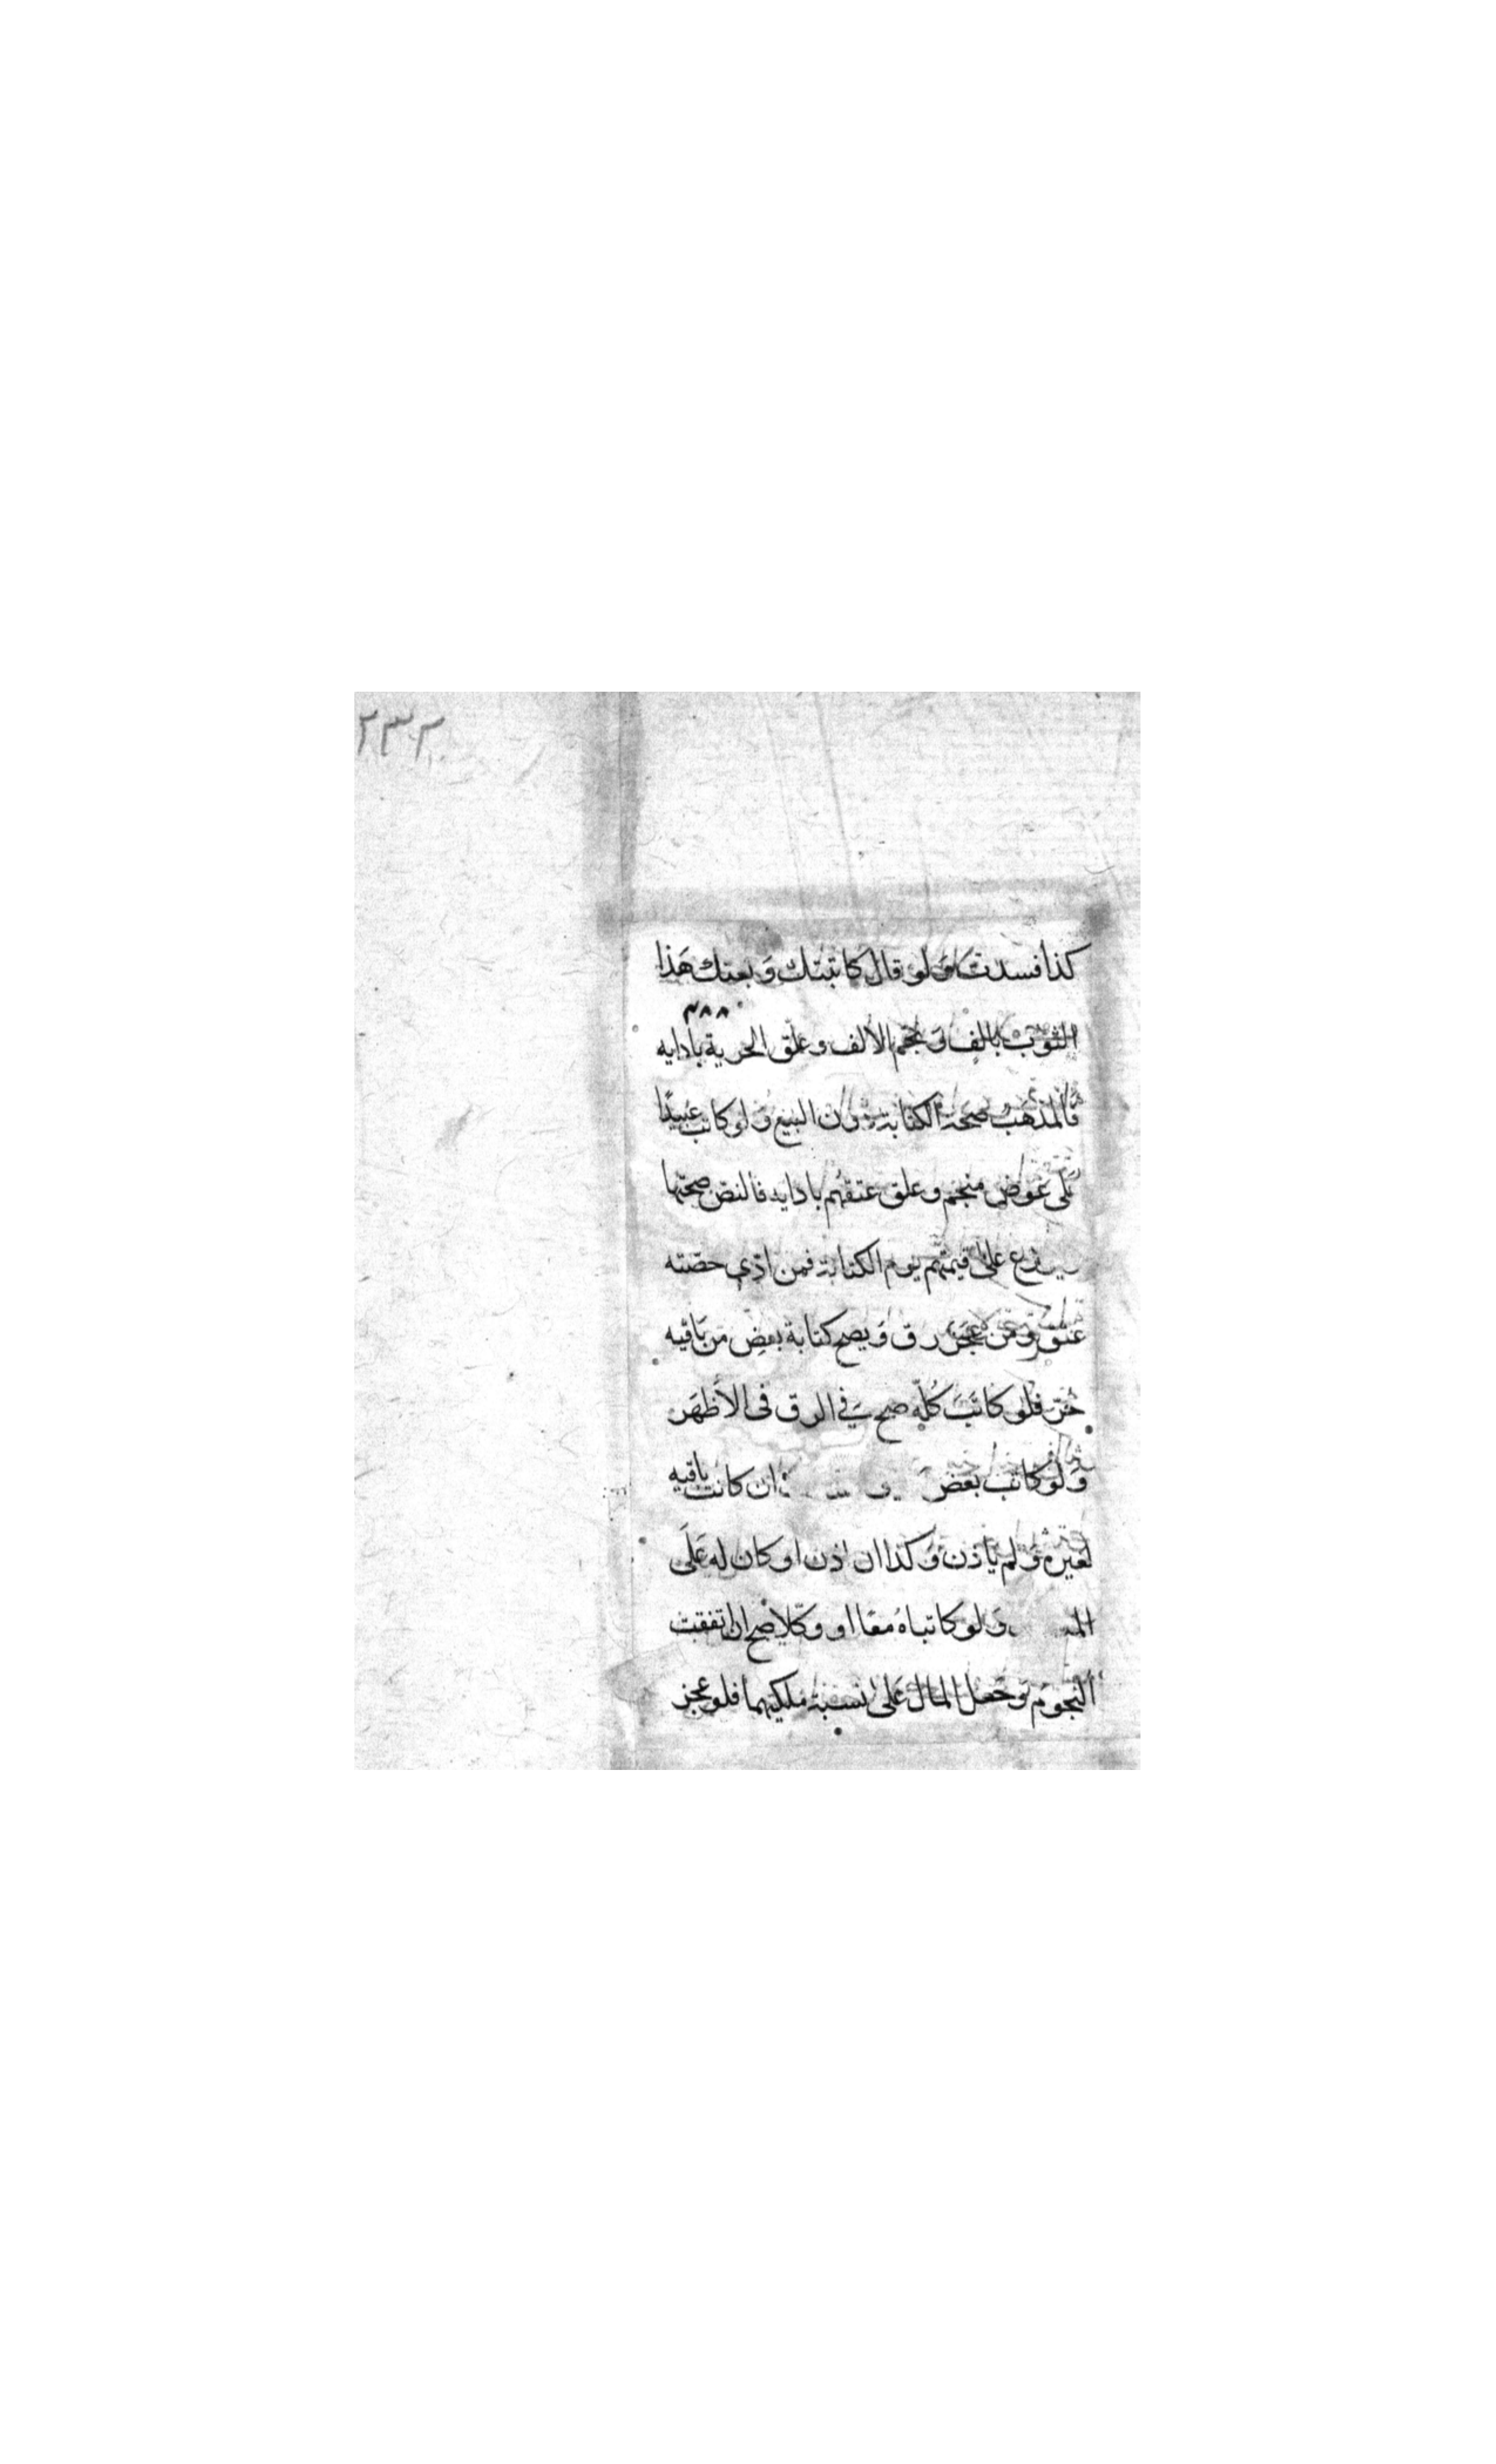 ٢٣٢
كذا فسدت ولو قال كاتبتك وبعتك هذا
الثوب بالف ونجم الالف وعلق الحرية بادايه
فالمذهب صحة الكتابة دون البيع ولو كاتب عبيدا
على عوض منجم وعلق عتقهم بادايه فالنص صحتها
على قيمتهم يوم الكتابة فمن ادى حصته
عتق ومن عجز رق ويصح كتابة بعض من باقيه
حر فلو كاتب كله صح في الرق في الاظهر
ولو كاتب بعض ان كانت باقيه
لغيره ولم ياذن وكذا ان اذن او كان له على
ولو كاتباه معا او وكلا صح ان اتفقت
النجوم وجعل المال على نسبة ملكيهما فلو عجز